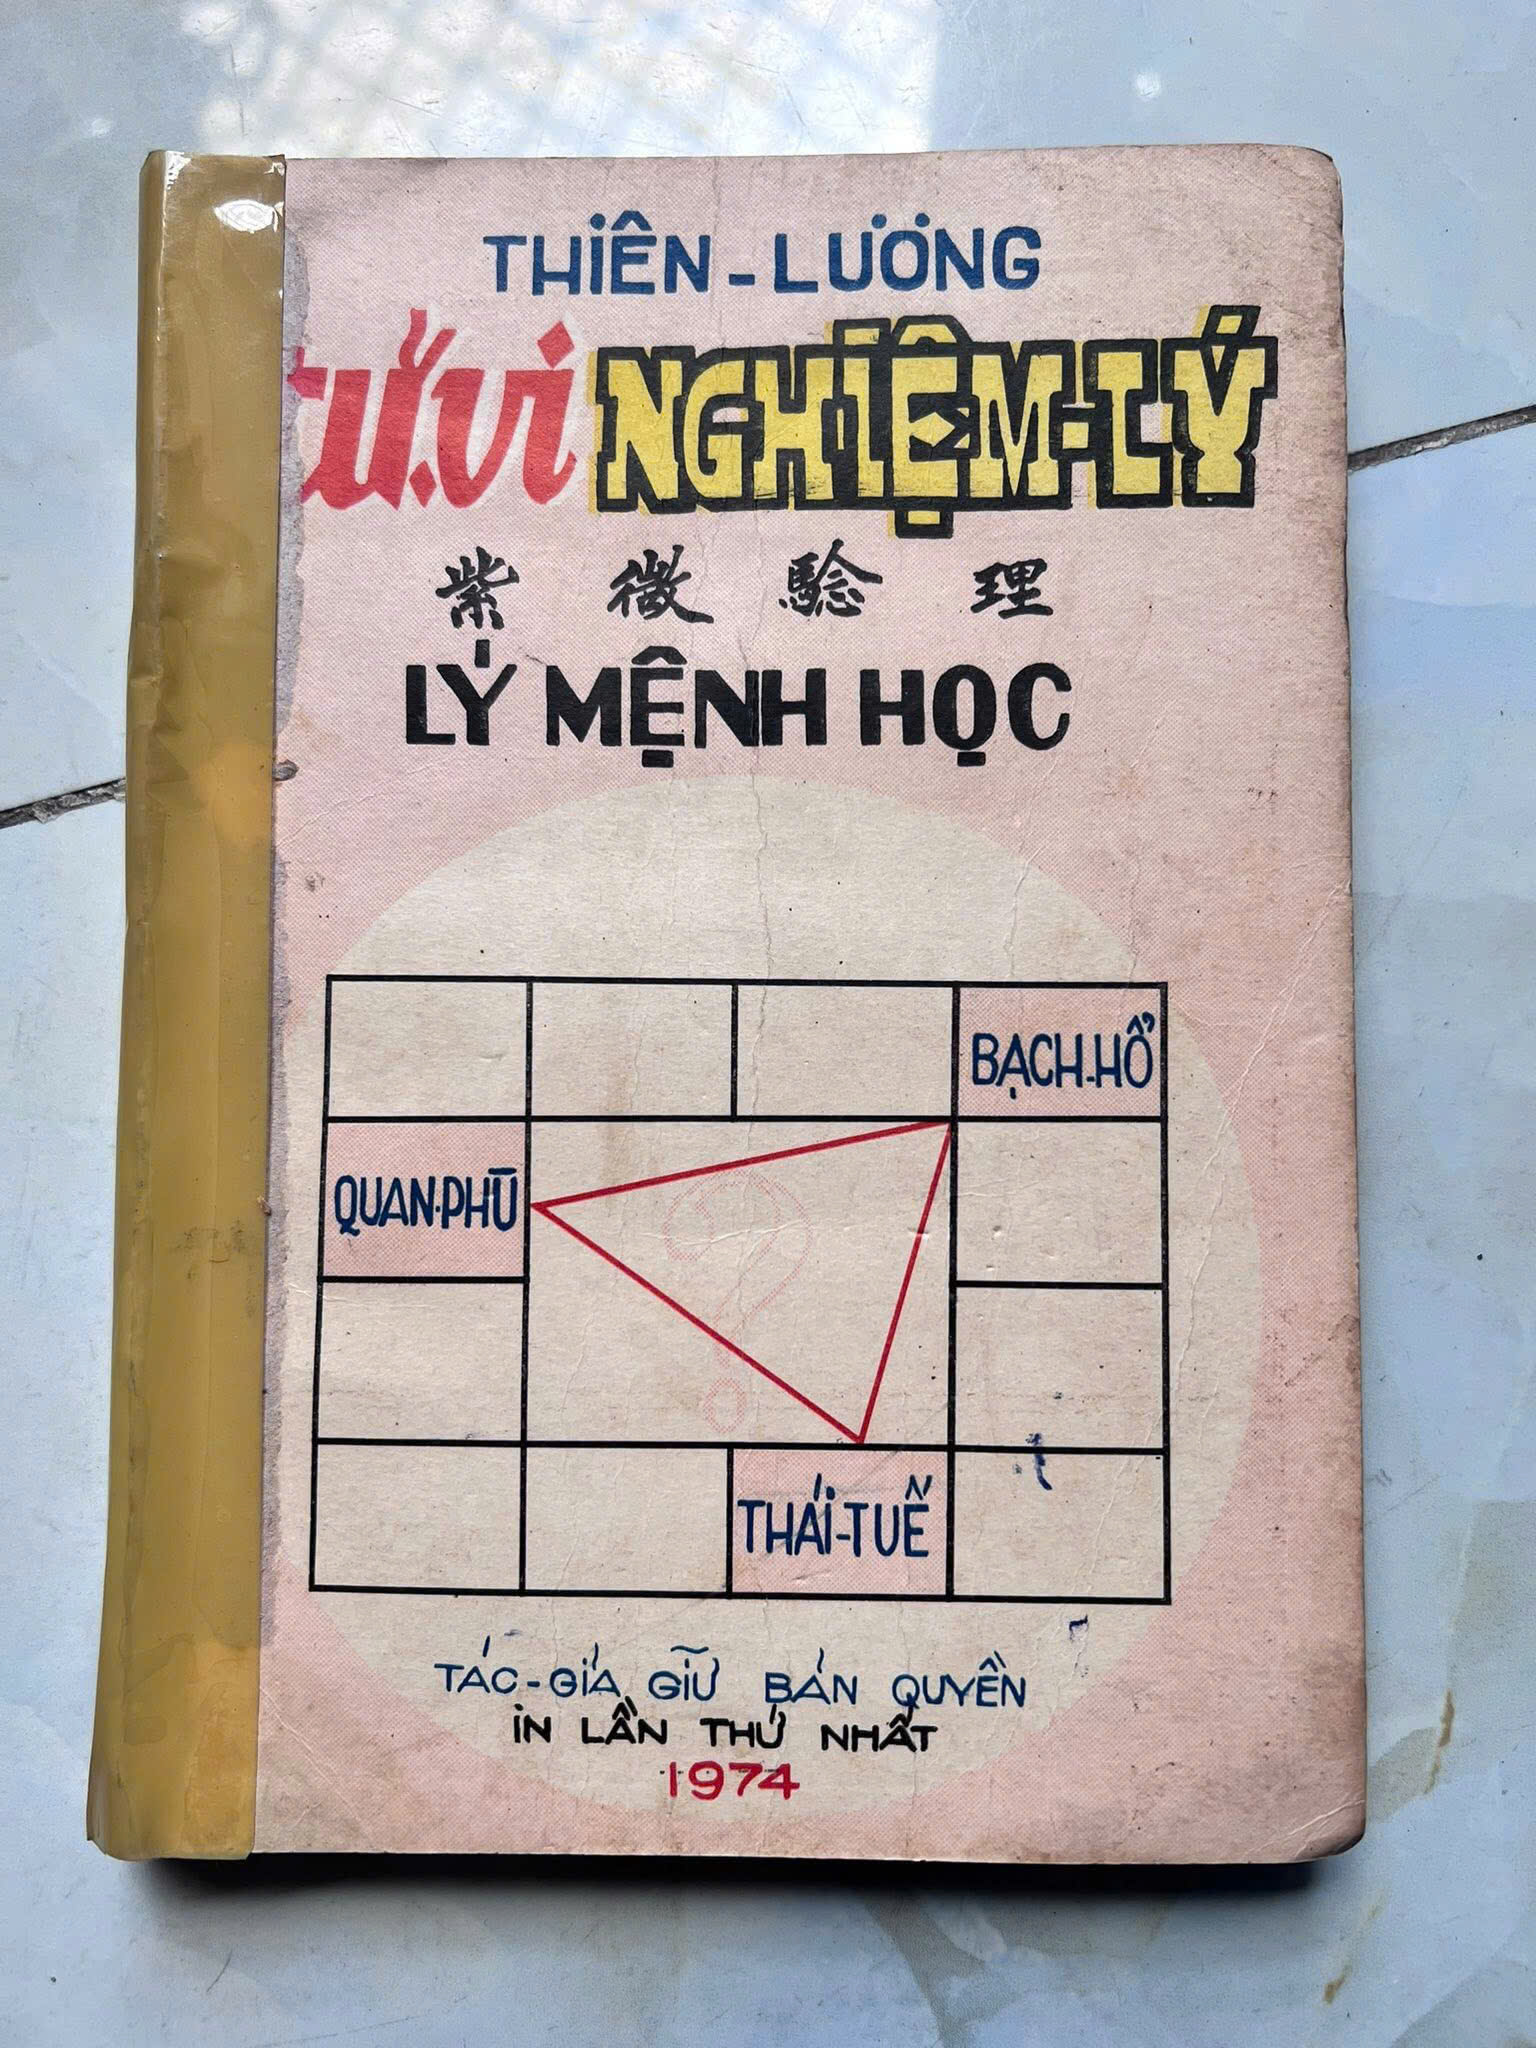 THIÊN-LƯƠNG
TỬ.VI NGHIỆM-LÝ
紫微騐理
LÝ MỆNH HỌC
BẠCH-HỔ
QUAN-PHÙ
THÁI-TUẾ
TÁC-GIẢ GIỮ BẢN QUYỀN
IN LẦN THỨ NHẤT
1974